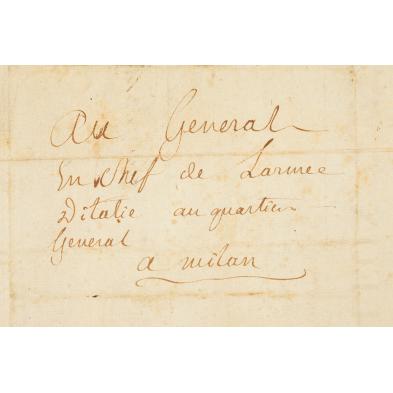 Au General
En chef de Larmee
D'italie au quartier
General
a milan